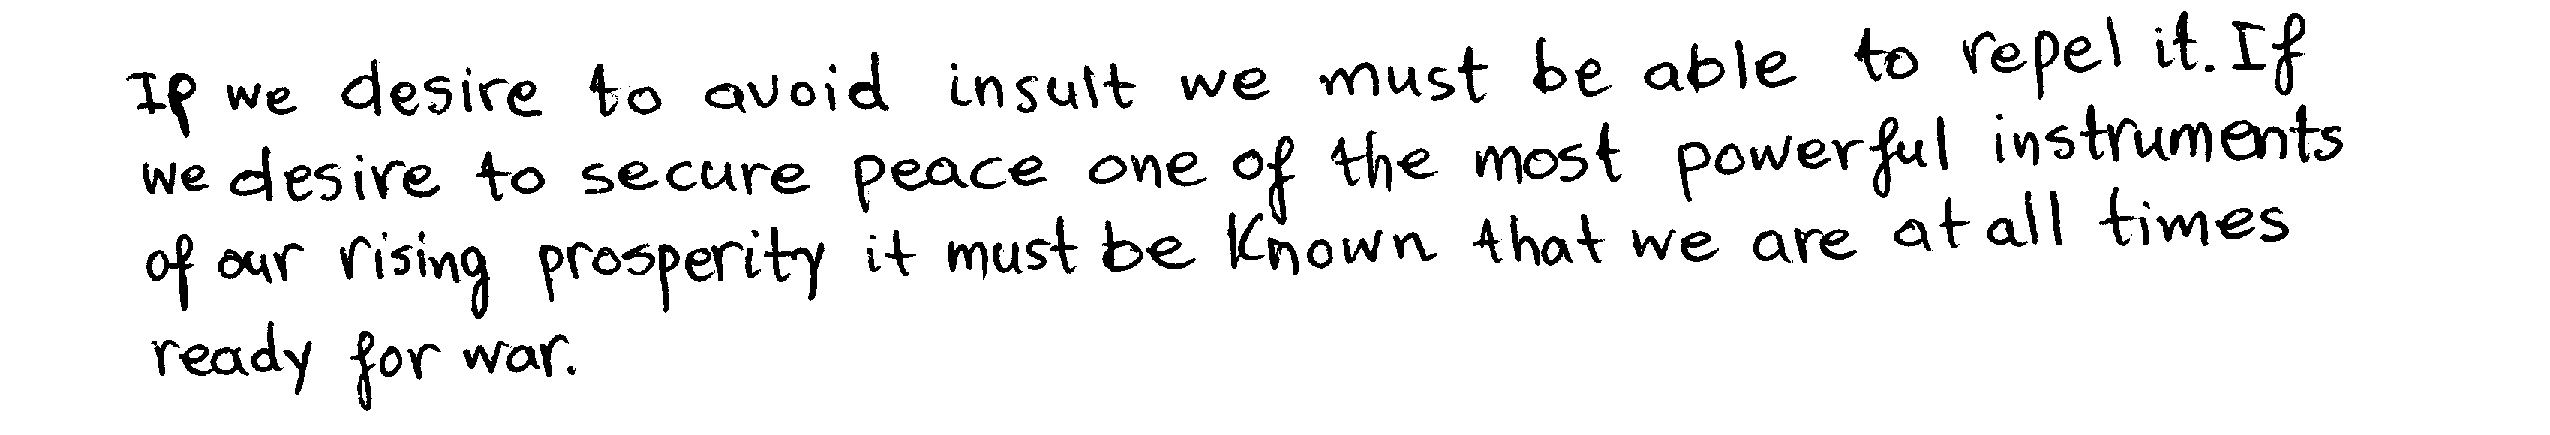 If we desire to avoid insult we must be able to repel it. If
we desire to secure peace one of the most powerful instruments
of our rising prosperity it must be known that we are at all times
ready for war.